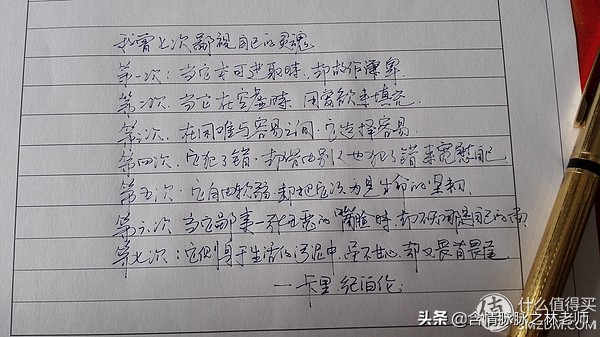 我曾七次鄙视自己的灵魂
第一次：当它本可进取时，却故作谦卑
第二次：当它在空虚时，用爱欲来填充
第三次，在困难与容易之间，它选择容易
第四次，它犯了错，却借由别人也犯了错来宽慰自己
第五次：它自由软弱，却把它认为是生命的坚韧
第六次 当它鄙夷一张丑恶的嘴脸时，却不知那是自己的
第七次：它侧身于生活的污泥中，虽不甘心，却又畏首畏尾
—卡里.纪伯伦
头条 @含情脉脉之林老师
值 什么值得买
SMZDM.COM